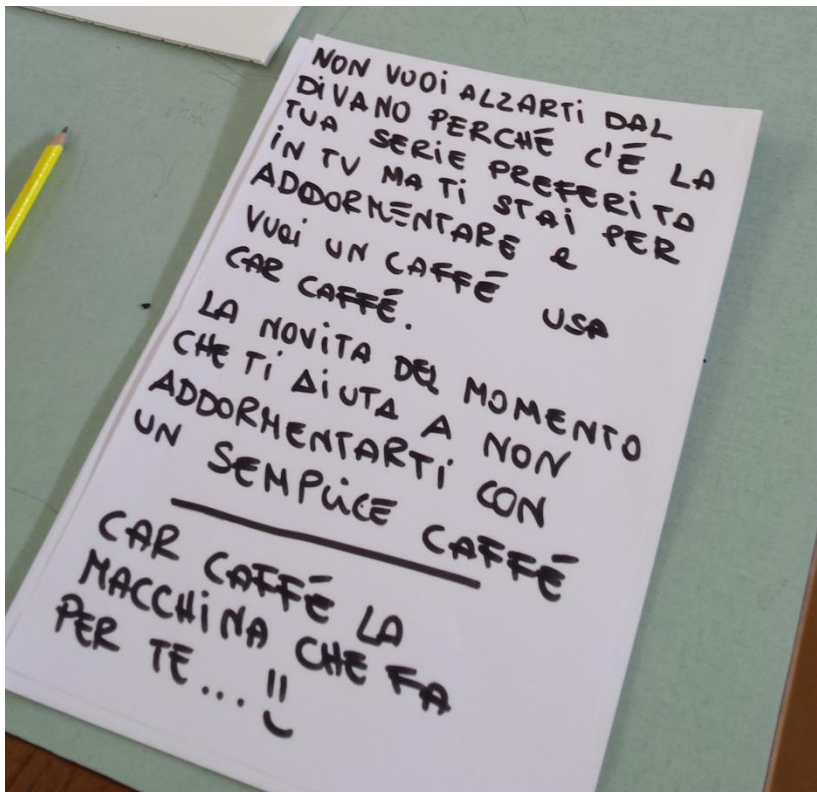 NON VUOI ALZARTI DAL
DIVANO PERCHÉ C'É LA
TUA SERIE PREFERITA
IN TV MA TI STAI PER
ADDORMENTARE e
VUOI UN CAFFÉ USA
CAR CAFFÉ.
LA NOVITA DEL MOMENTO
CHE TI AIUTA A NON
ADDORMENTARTI CON
UN SEMPLICE CAFFÉ
CAR CAFFÉ LA
MACCHINA CHE FA
PER TE...